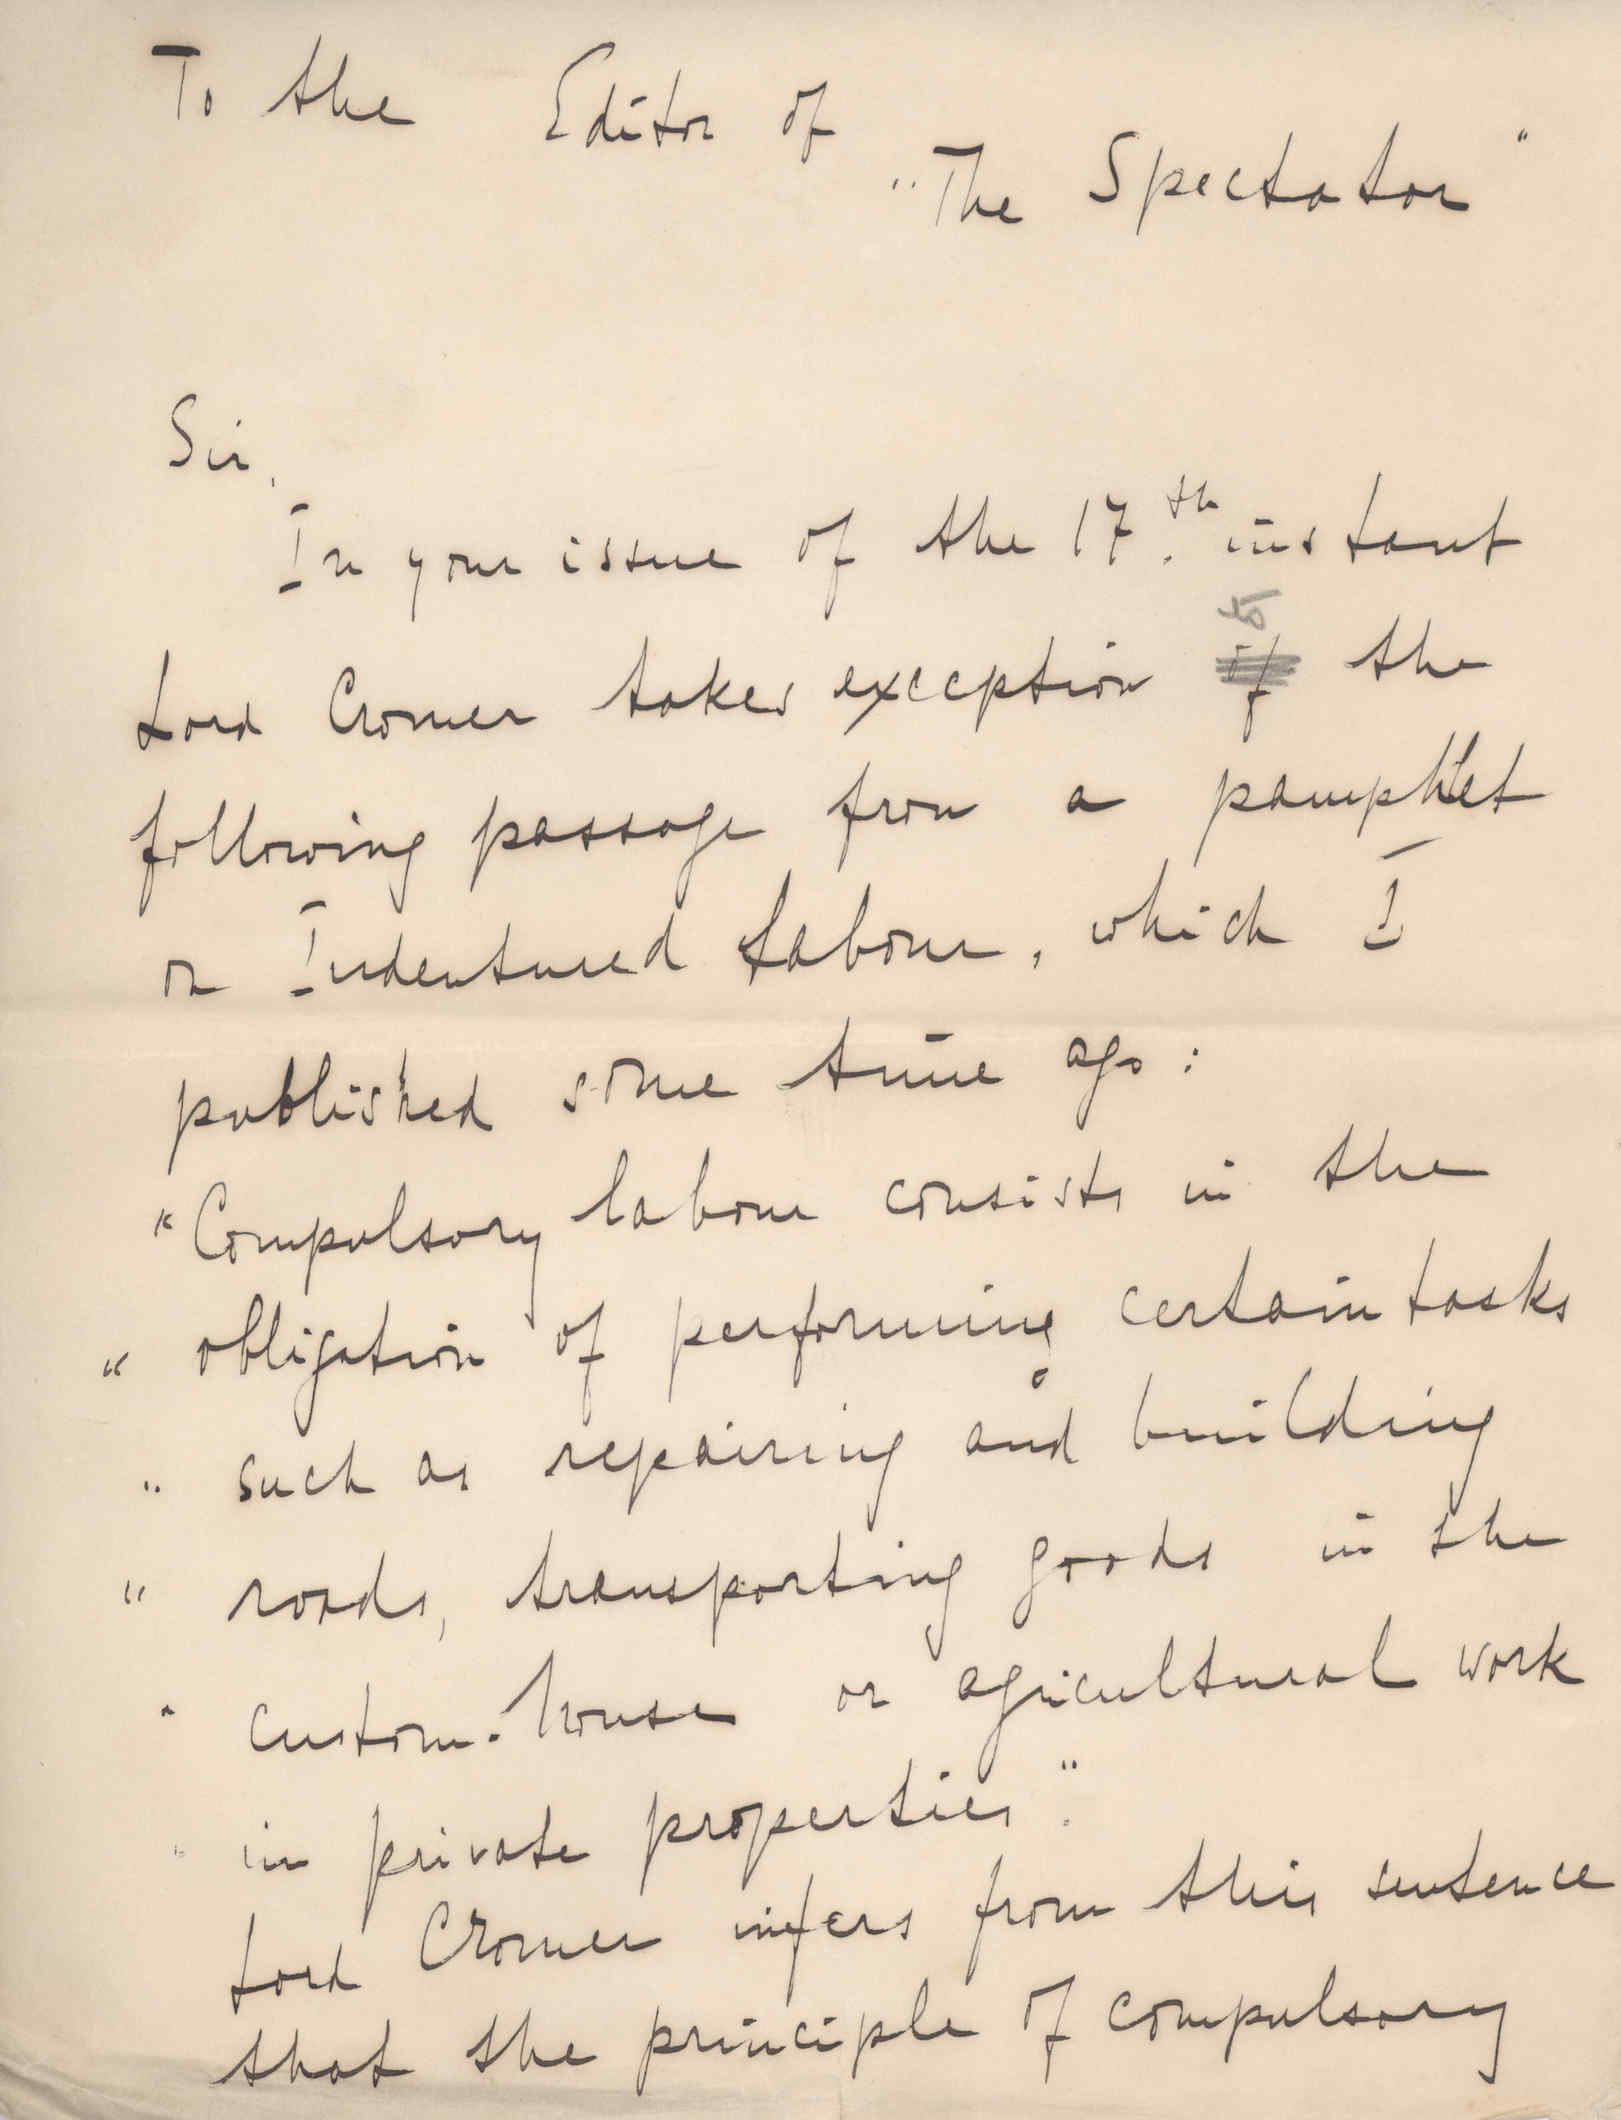 To the Editor of
"The Spectator"
Sir,
In your issue of the 17.th instant
to
Lord Cromer takes exception of the
following passage from a pamphlet
on Indentured Labour, which I
published some time ago:
"Compulsory labour consists in the
" obligation of performing certain tasks
" such as repairing and building
" roads, transporting goods in the
" custom-house or agricultural work
" in private properties".
Lord Cromer infers from this sentence
that the principle of compulsory